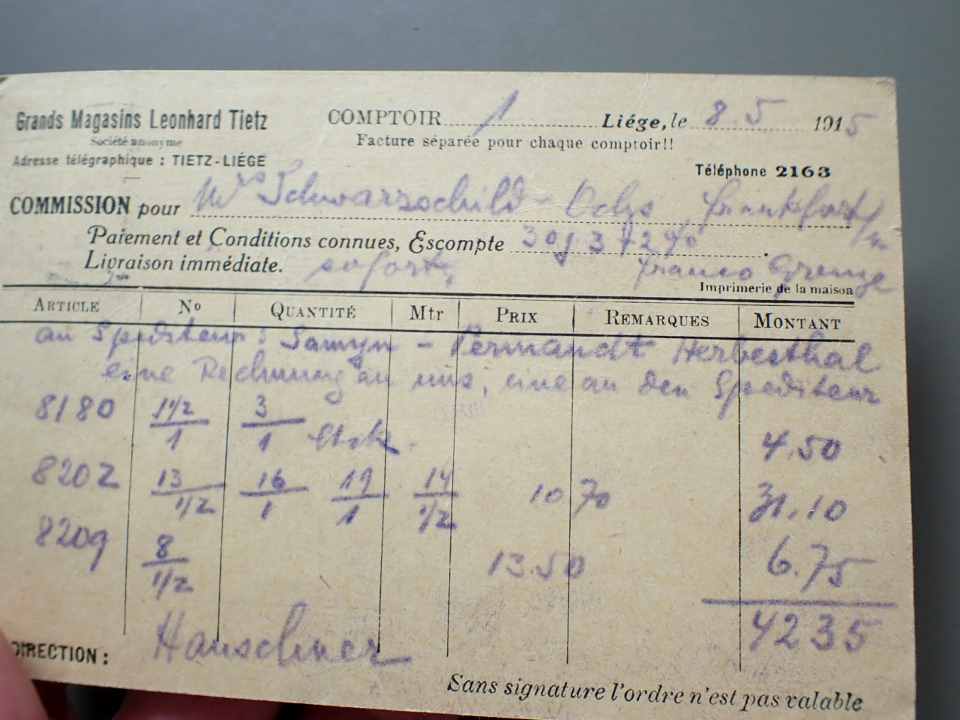 Grands Magasins Leonhard Tietz
Société anonyme
Adresse télégraphique : TIETZ-LIÉGE
COMPTOIR 1 Liége, le 8.5 1915
Facture séparée pour chaque comptoir!!
Téléphone 2163
COMMISSION pour Mrs Schwarzschild-Ochs, Frankfort/M
Paiement et Conditions connues, Escompte
Livraison immédiate. sofort, franco Grenze
Imprimerie de la maison
ARTICLE No QUANTITÉ Mtr PRIX REMARQUES MONTANT
an Spediteur: Samyn - Permandt Herbesthal
eine Rechnung an uns, eine an den Spediteur
8180 11/2 3
1 1 4.50
8202 13 16 19 14 10 70 31.10
1/2 1 1 1/2
8209 8 13.50 6.75
1/2
4235
DIRECTION : Hanschner
Sans signature l'ordre n'est pas valable